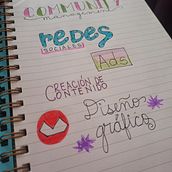 COMMUNITY
management
redes
SOCIALES
Ads
CREACIÓN DE
CONTENIDO
Diseño
gráfico